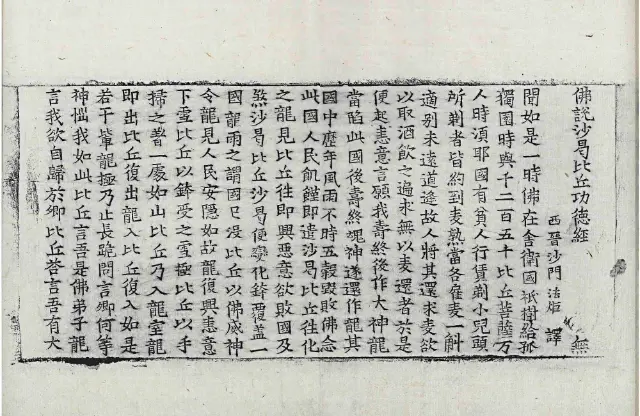 佛說沙曷比丘功德經 無
西晉沙門 法炬 譯
聞如是一時佛在舍衛國祇樹給孤
獨園時與千二百五十比丘菩薩万
人時湏耶國有貧人行賃剃小兒頭
所剃者皆約到麦熟當各雇麦一斛
適別未遠道逢故人將其還求麦欲
以取酒飲之遍求無以麦還者於是
便起恚意言願我壽終後作大神龍
當陷此國後壽終魂神遂還作龍其
國中歷年風雨不時五穀毀敗佛念
此國人民飢饉即遣沙曷比丘徃化
之龍見比丘徃即興惡意欲敗國及
煞沙曷比丘沙曷便變化鉢覆蓋一
國龍雨之謂國已没比丘以佛威神
令龍見人民安隱如故龍復興恚意
下雪比丘以鉢受之雪極比丘以手
掃之著一處如山比丘乃入龍室龍
即出比丘復出龍入比丘復入如是
若干輩龍極乃止長跪問言卿何等
神我如此比丘言吾是佛弟子龍
言我欲自歸於卿比丘荅言吾有大